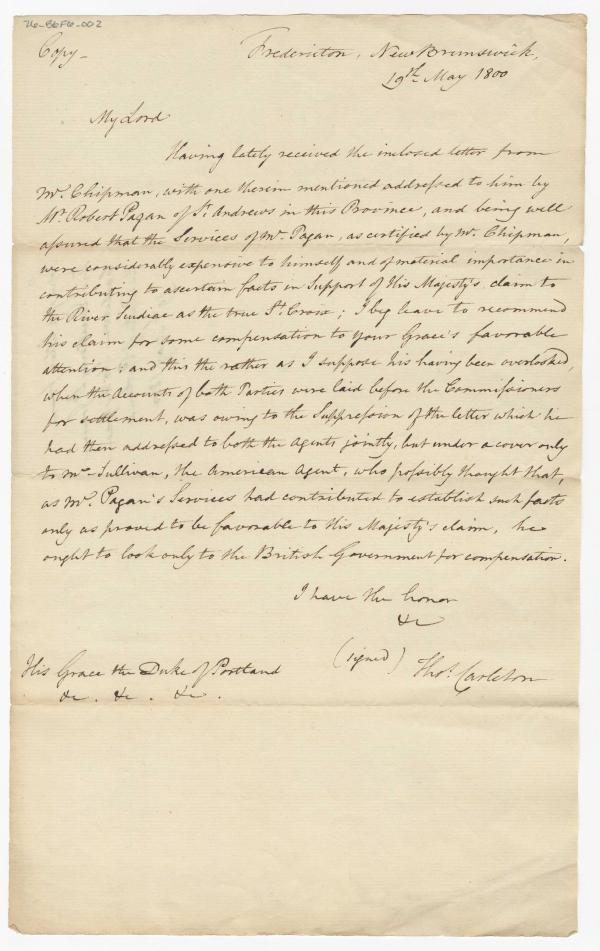 76-B6F6-002
Copy-
Fredericton, New Brunswick,
19th May 1800
My Lord
Having lately received the inclosed letter from
Mr. Chipman, with one therein mentioned addressed to him by
Mr Robert Pagan of St. Andrews in this Province, and being well
assured that the Services of Mr. Pagan, as certified by Mr. Chipman,
were considerably expensive to himself and of material importance in
contributing to ascertain facts in Support of His Majesty's claim to
the River Scudiac as the true St. Croix; I beg leave to recommend
his claim for some compensation to your Grace's favorable
attention: and this the rather as I suppose his having been overlooked,
when the Accounts of both Parties were laid before the Commissioners
for settlement, was owing to the Suppression of the letter which he
had then addressed to both the Agents jointly, but under a cover only
to Mr. Sullivan, the American Agent, who possibly thought that,
as Mr. Pagan's Services had contributed to establish such facts
only as proved to be favorable to His Majesty's claim, he
ought to look only to the British Government for compensation.
I have the honor
&c
(signed) Thos. Carleton
His Grace the Duke of Portland
&c. &c. &c.